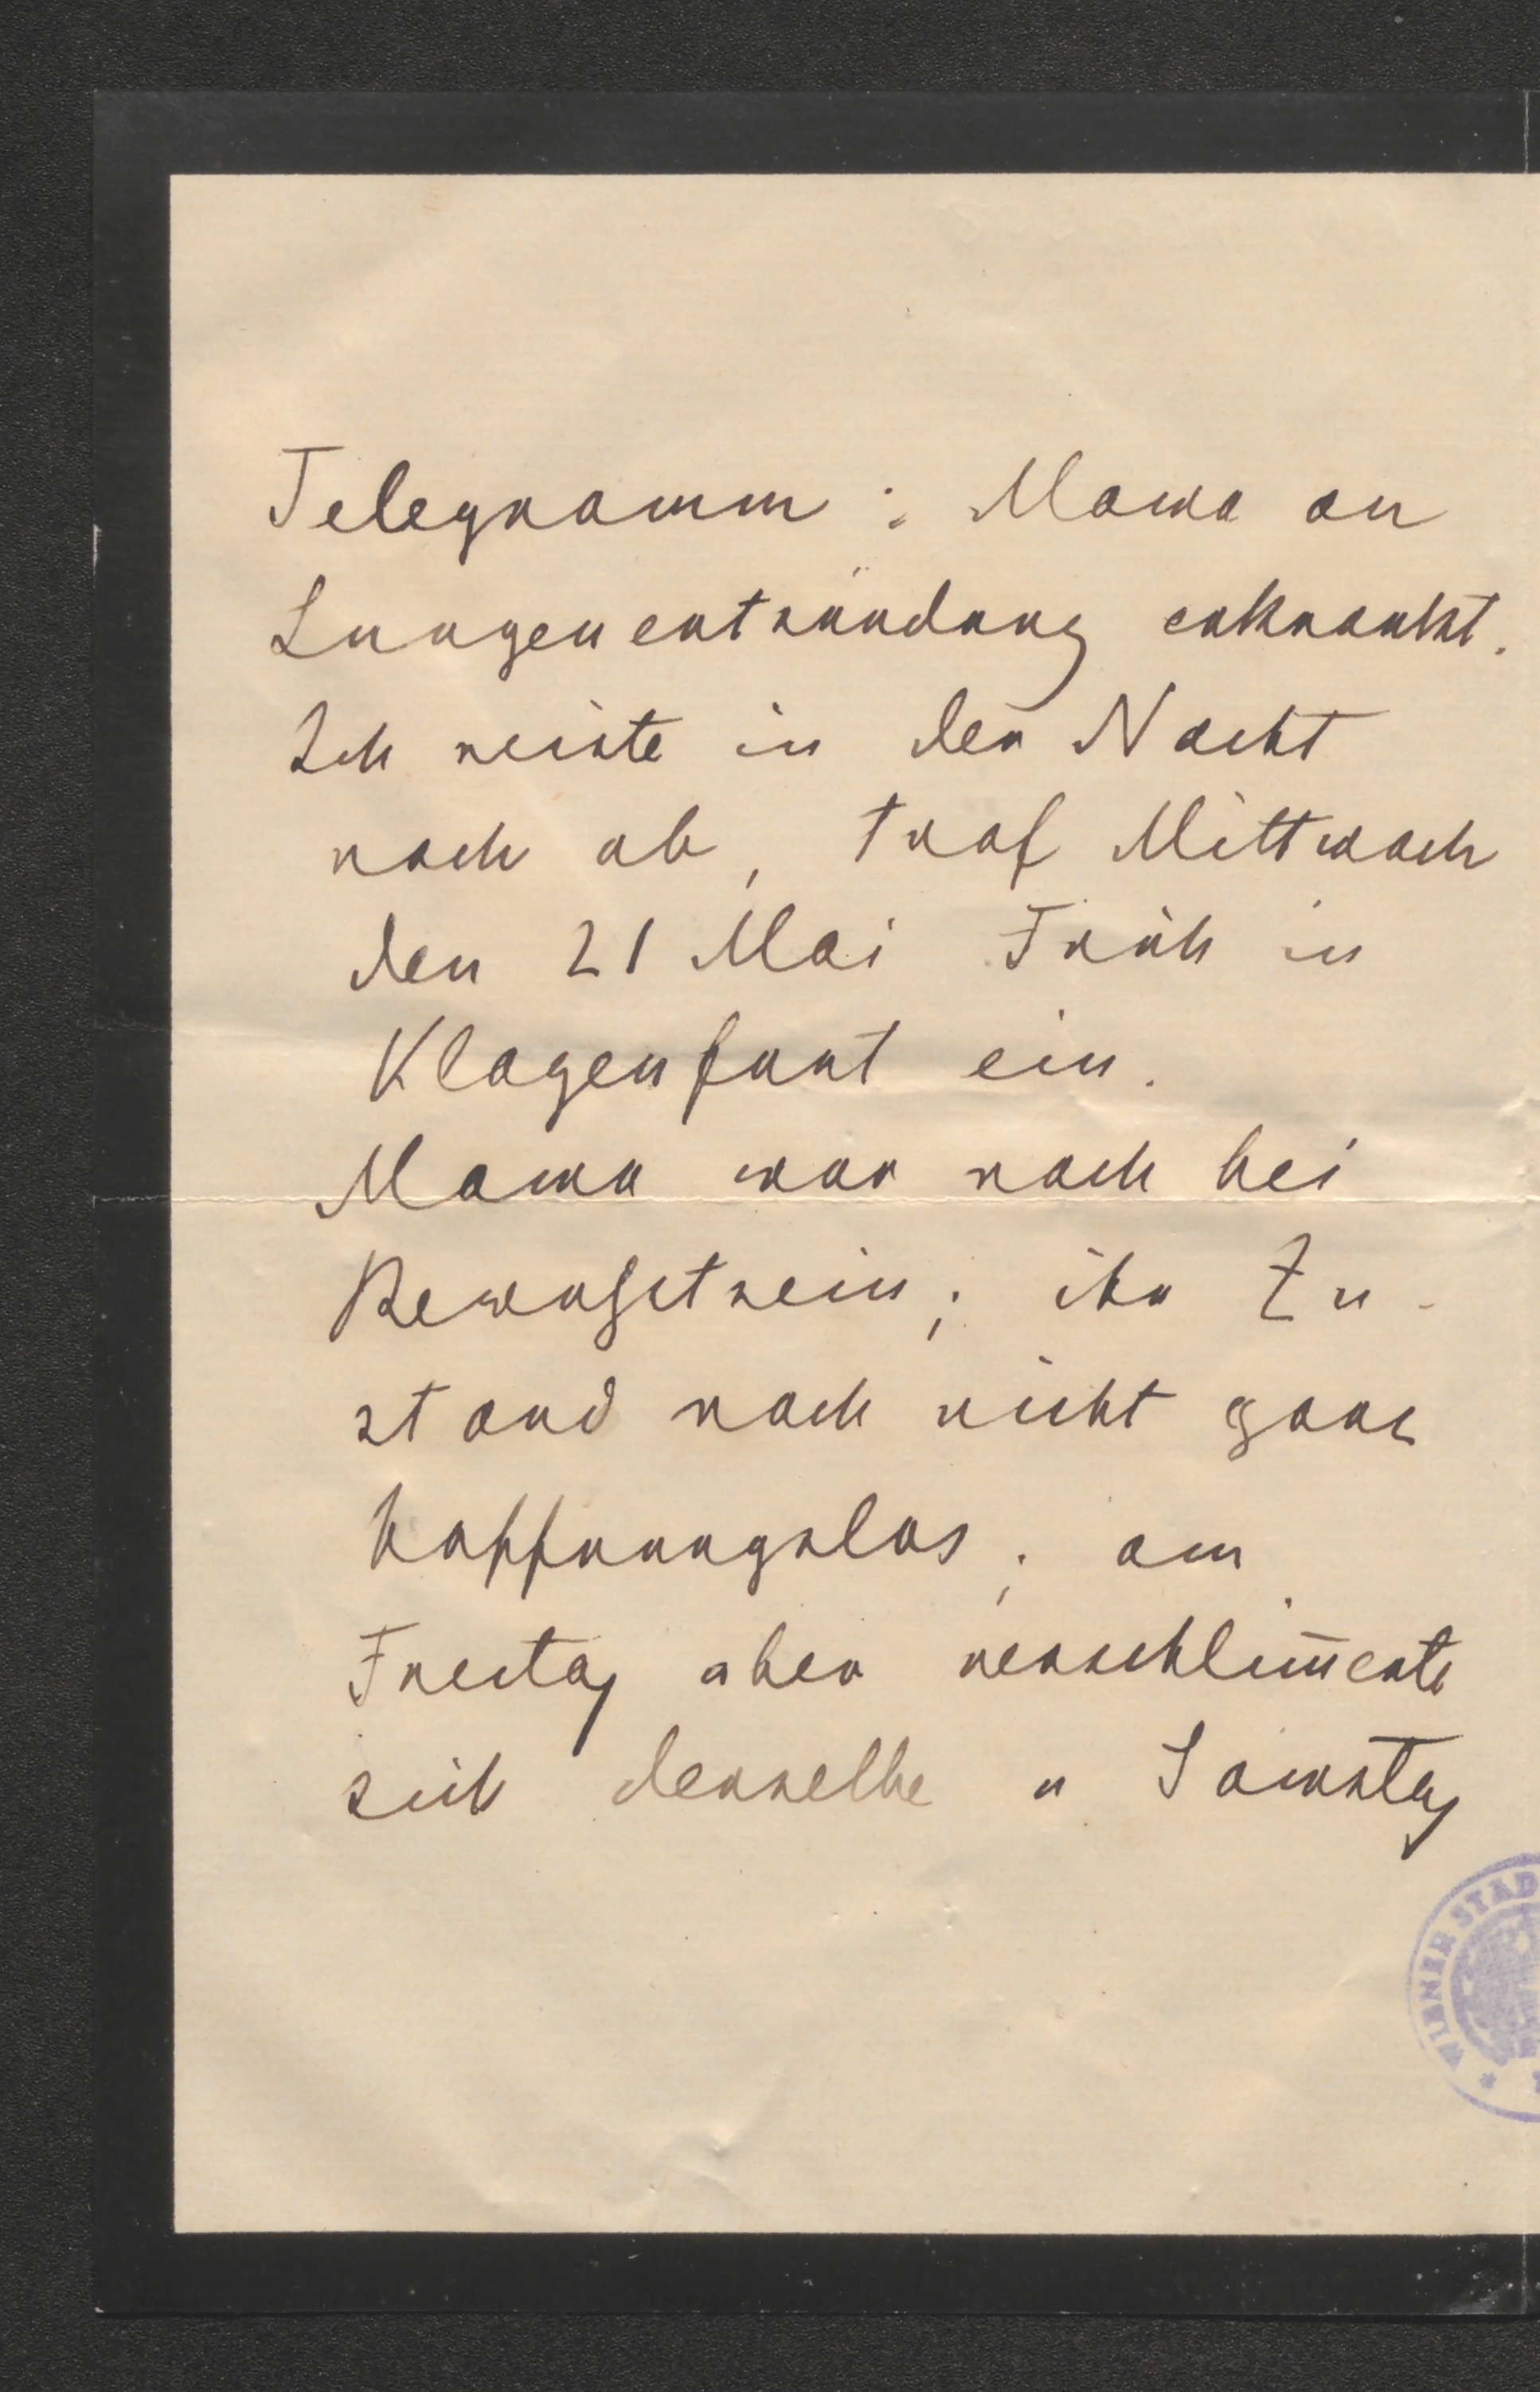 Telegramm : Mama an
Lungenentzündung erkrankt.
Ich reiste in der Nacht
noch ab, traf Mittwoch
den 21 Mai Früh in
Klagenfurt ein.
Mama war noch bei
Bewußtsein; ihr Zu-
stand noch nicht ganz
hoffnungslos; am
Freitag aber verschlim̅erte
sich derselbe u Samstag
WIENER STAD